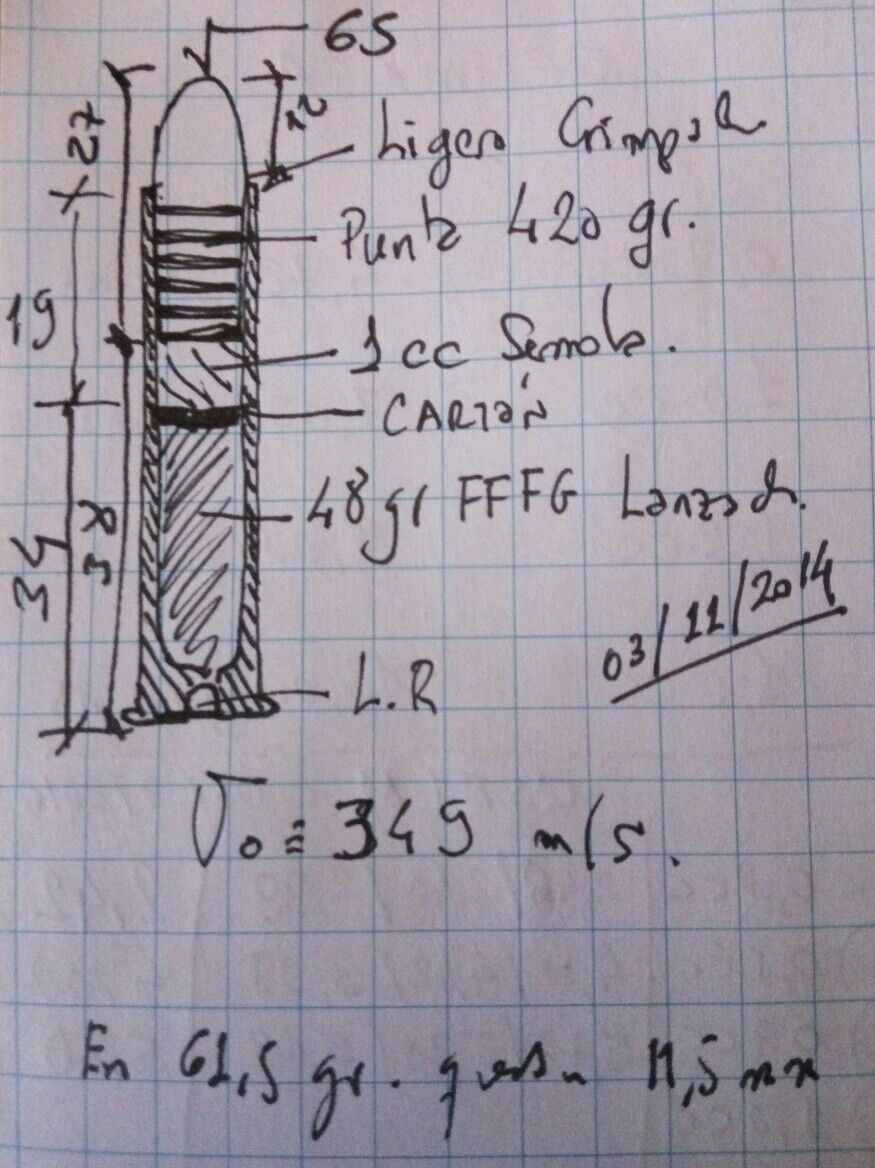 65
27
Ligero Crimpado
Punta 420 gr.
19
1 cc Sémola.
CARTÓN
48 gr FFFG Lanzado.
34
38
03/11/2014
L.R
Vo = 349 m/s.
En 61,5 gr. quedan 11,5 mm